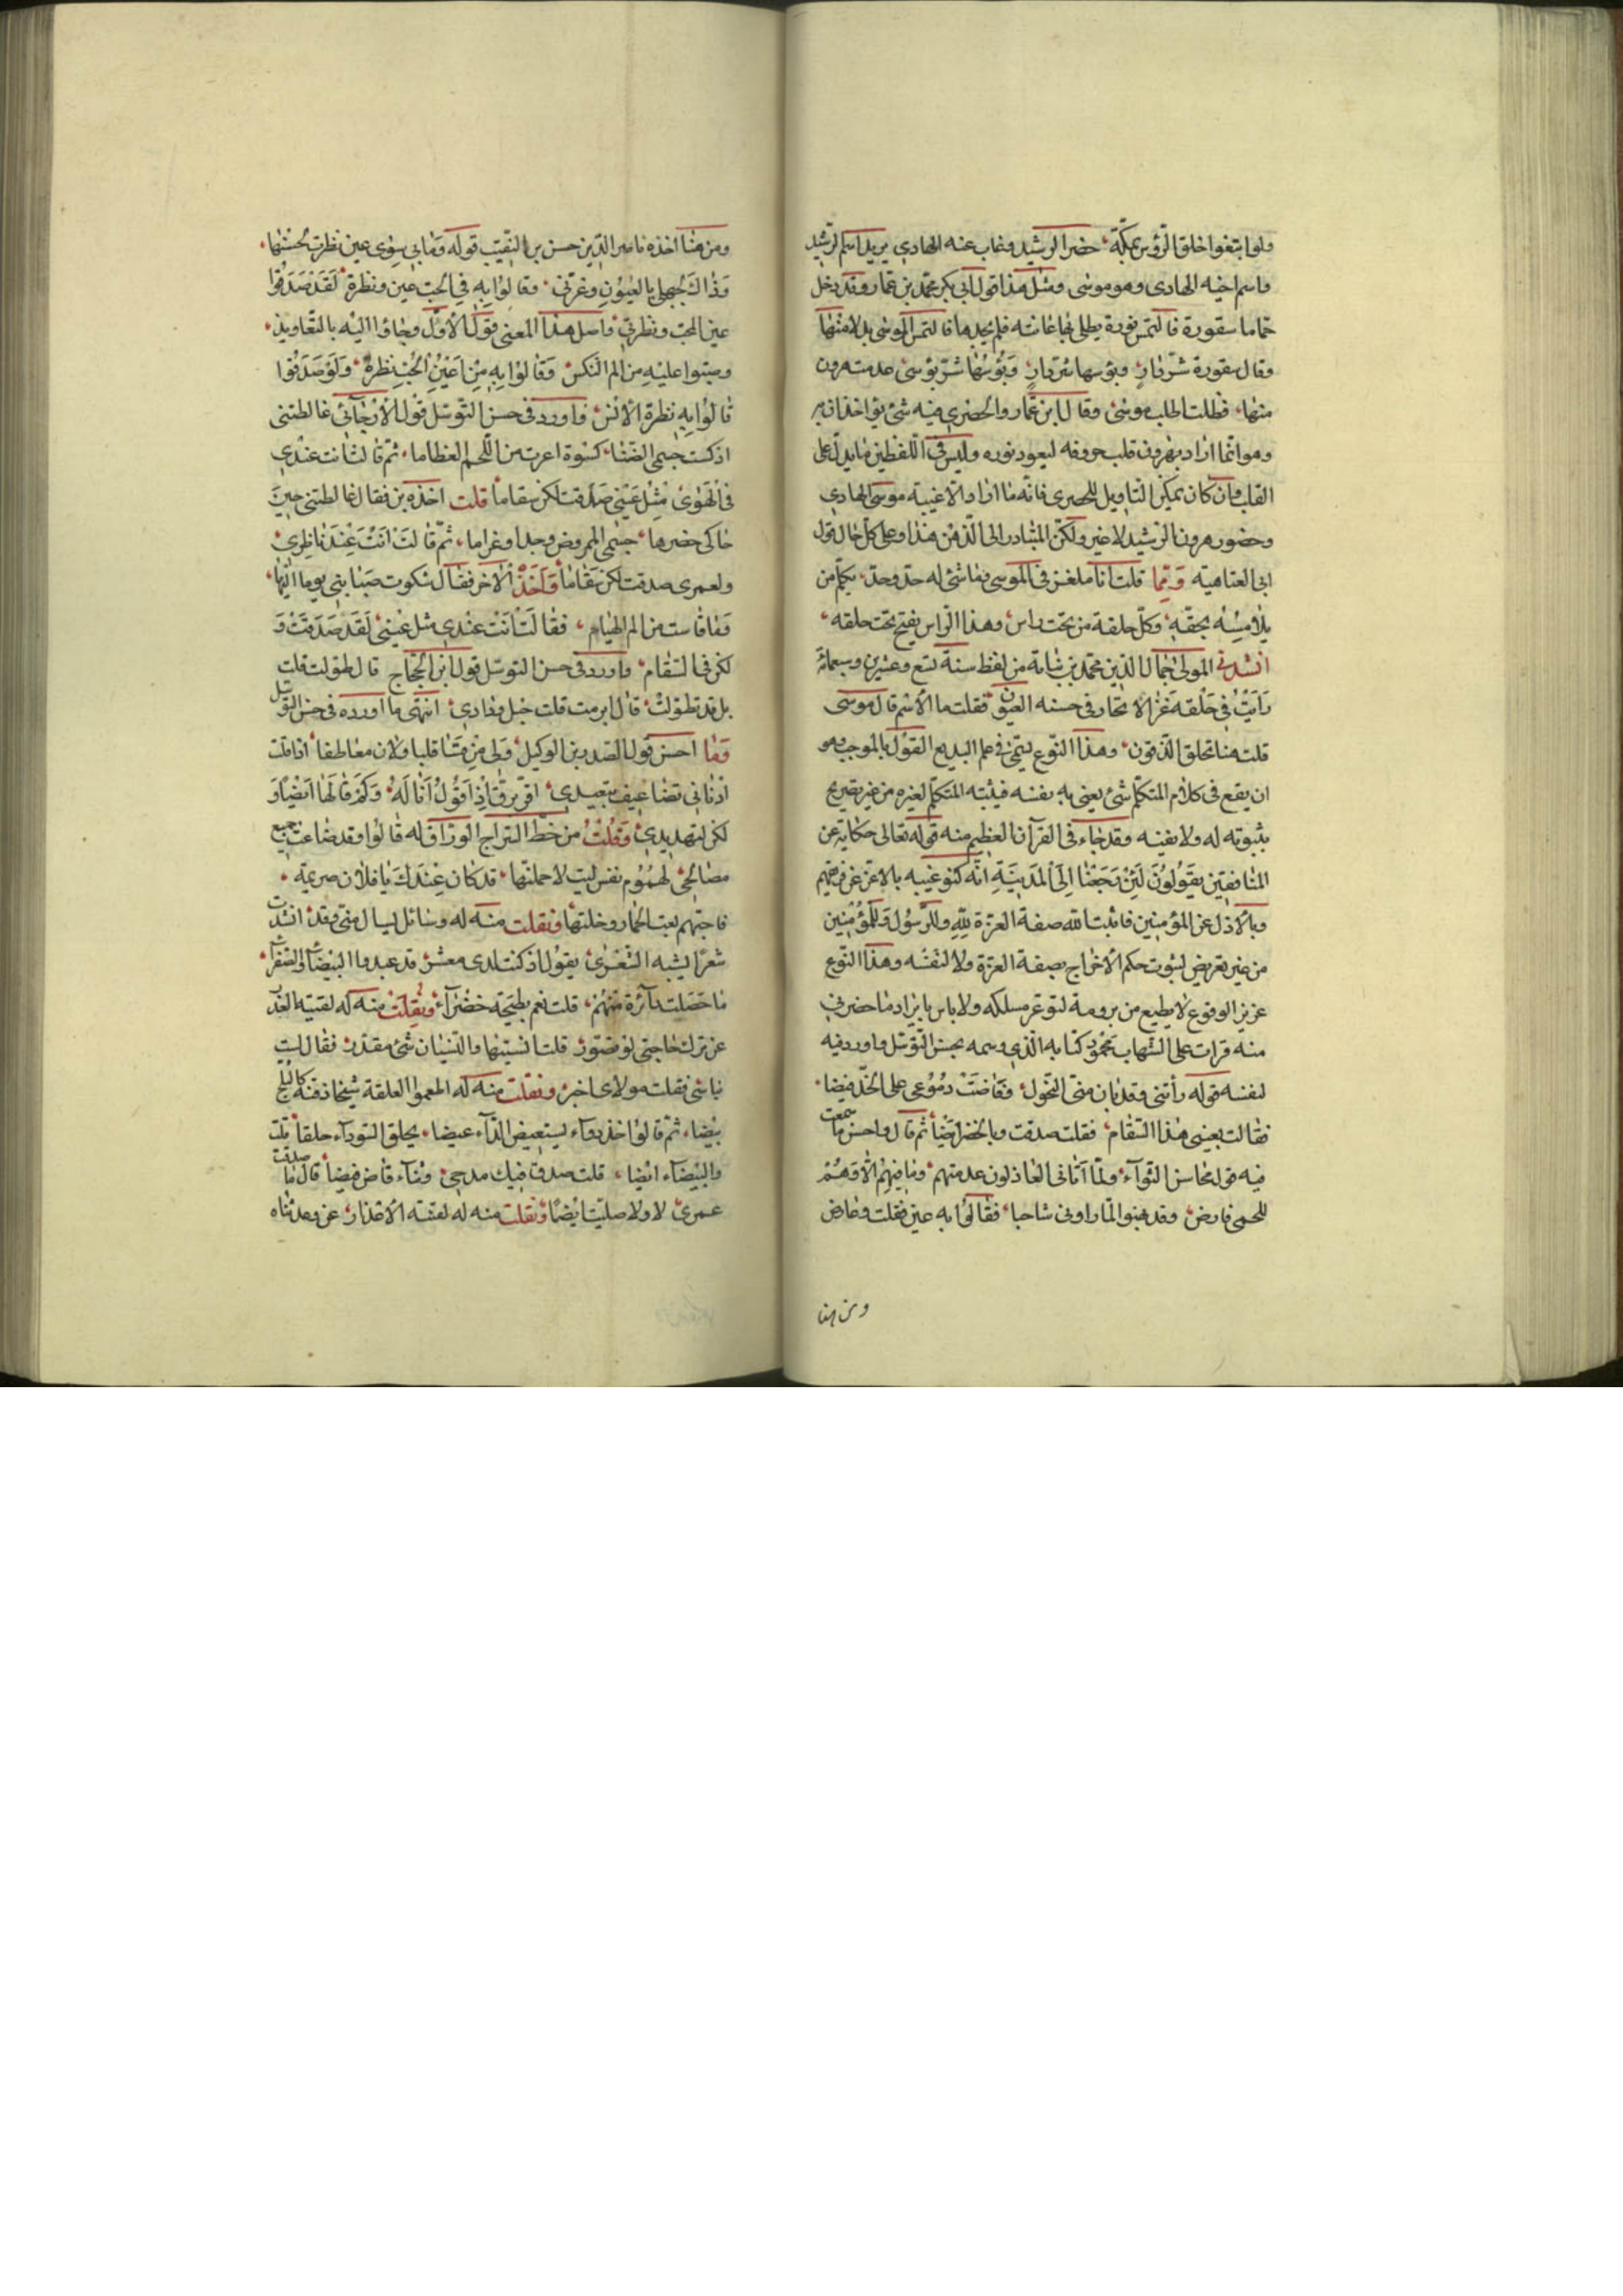 ولوا بتغوا خلق الرؤس بمكة حضر الرشيد وغاب عنه الهادي يريد اسم الرشيد
واسم اخيه الهادى وهو موسى ومثل هذا قول ابى بكر محمد بن عمار وقد دخل
حماما بسقورة فالتمس نورة يطلى بها عانته فلم يجدها فالتمس الموسى بدلا منها
وقال بسقورة شر دار وبؤسها شر بوسى عدمت هرون
منها فظلت اطلب موسى وقال ابن عمار والحضرى فيه شئ يؤاخذان به
وهو انما اراد بهرون قلب حروفه ليعود نوره وليس فى اللفظين ما يدل على
القلب وان كان يمكن التاويل للحصرى فانه ما اراد الا غيبة موسى الهادي
وحضور هرون الرشيد لا غير ولكن المتبادر الى الذهن هذا وعلى كل حال قول
ابى العتاهية ومما قلت انا ملغزا فى الموسى وما شئ له حد وحد يكلم من
يلامسه بحقه وكل حلقة من تحت راس وهذا الراس يفتح تحت حلقه
انشدنى المولى جمال الدين محمد بن نباتة من لفظه سنة تسع وعشرين وسبعمائة
رايت فى جلقه غزالا تحار فى حسنه العيون فقلت ما الاسم قال موسى
قلت هنا تحلق الذقون وهذا النوع يسمى فى علم البديع القول بالموجب وهو
ان يقع فى كلام المتكلم شئ يعنى به نفسه فيثبته المتكلم لغيره من غير تصريح
بثبوته له ولا بنفيه وقد جاء فى القرآن العظيم منه قوله تعالى حكاية عن
المنافقين يقولون لئن رجعنا الى المدينة انه كنو عنه بالاعز عن فريقهم
وبالاذل عن المؤمنين فاثبت الله صفة العزة لله وللرسول وللمؤمنين
من غير تعريض لثبوت حكم الاخراج بصفة العزة ولا لنفسه وهذا النوع
عزيز الوقوع لا يطيع من يرومه لتوعر مسلكه ولا باس بايراد ما حضرنى
منه قرات على الشهاب محمود كتابه الذي وسمه بحسن التوسل واورد فيه
لنفسه قوله رأتنى وقد نال منى النحول وفاضت دموعى على الخد فيضا
فقالت بعينى هذا السقام فقلت صدقت وبالخصر ايضا ثم قال واحسن ما سمعت
فيه قول محاسن الشوآء ولما اتانى العاذلون عدمتهم وما فيهم الا وهم
للحمى قارض وقد بهتوا لما راونى شاحبا فقالوا به عين فقلت وعارض
ومن هنا
ومن هنا اخذه ناصر الدين حسن بن النقيب قوله وما بى سوى عين نظرت لحسنها
وذاك لجهلى بالعيون وغرتى وقالوا به فى الحب عين ونظرة لقد صدقوا
عين المحب ونظرتى واصل هذا المعنى قول الاول وجاؤا اليه بالتعاويذ
وصبوا عليه من الم النكس وقالوا به من اعين الجن نظرة ولو صدقوا
قالوا به نظرة الانس واورد فى حسن التوسل قول الارجانى غالطتنى
اذ كست جسمى الضنا كسوة اعرت من اللحم العظاما ثم قالت انت عندي
فى الهوى مثل عينى صدقت لكن سقاما قلت اخذه من فقال غالطتنى حين
حاكى خصرها جسمى الممروض وجدا وغراما ثم قالت انت عند ناظرى
ولعمرى صدقت لكن سقاما واخذ الاخر فقال شكوت صبابتى يوما اليها
وما قاسيت من الم الهيام فقالت انت عندي مثل عينى لقد صدقت و
لكن فى السقام واورد فى حسن التوسل قول ابن الحجاج قال طولت قلت
بل قد تطولت قال ابرمت قلت حبل ودادي انتهى ما اورده فى حسن التوسل
وما احسن قول الصدر بن الوكيل ولى من قسا قلبا ولان معاطفا اذا قلت
ادنانى تضاعيف تبعيدي اقر برق اذ اقول انا له وكم قالها ايضا و
لكن لتهديدي وقلت من خط السراج الوراق له قالوا وقد ضاعت جميع
مصالحى لهموم نفس ليت لا حملتها قد كان عندك يا فلان صريمة
فاجبتهم بعت الحمار وخلتها ونقلت منه له وسائل ليسال منى وقد انشدت
شعرا يشبه الشعرى يقول اذ كنت لدى معشر قد عبدوا البيضاء والصفرا
ما حصلت دآئرة منهم قلت نعم بطيخة خضرآء ونقلت منه له لقيته العذر
عن ترك حاجتى لو فصور قلت انسيتها والنسيان شئ مقدر فقال لست
ناسى فقلت مولاى اخبر ونقلت منه له المعموا العلقة شيخا ذقنه كالثلج
بيضا ثم قالوا خذ دوآء ليستعيض الدآء عيضا يحلق السودآء حلقا قلت
والبيضآء ايضا قلت صدق فيك مدحى وثنآء فاض فيضا قال ما صدقت
عمرى لا ولا صليت ايضا ونقلت منه له لفتنه الاقدار عن وعد ثناه